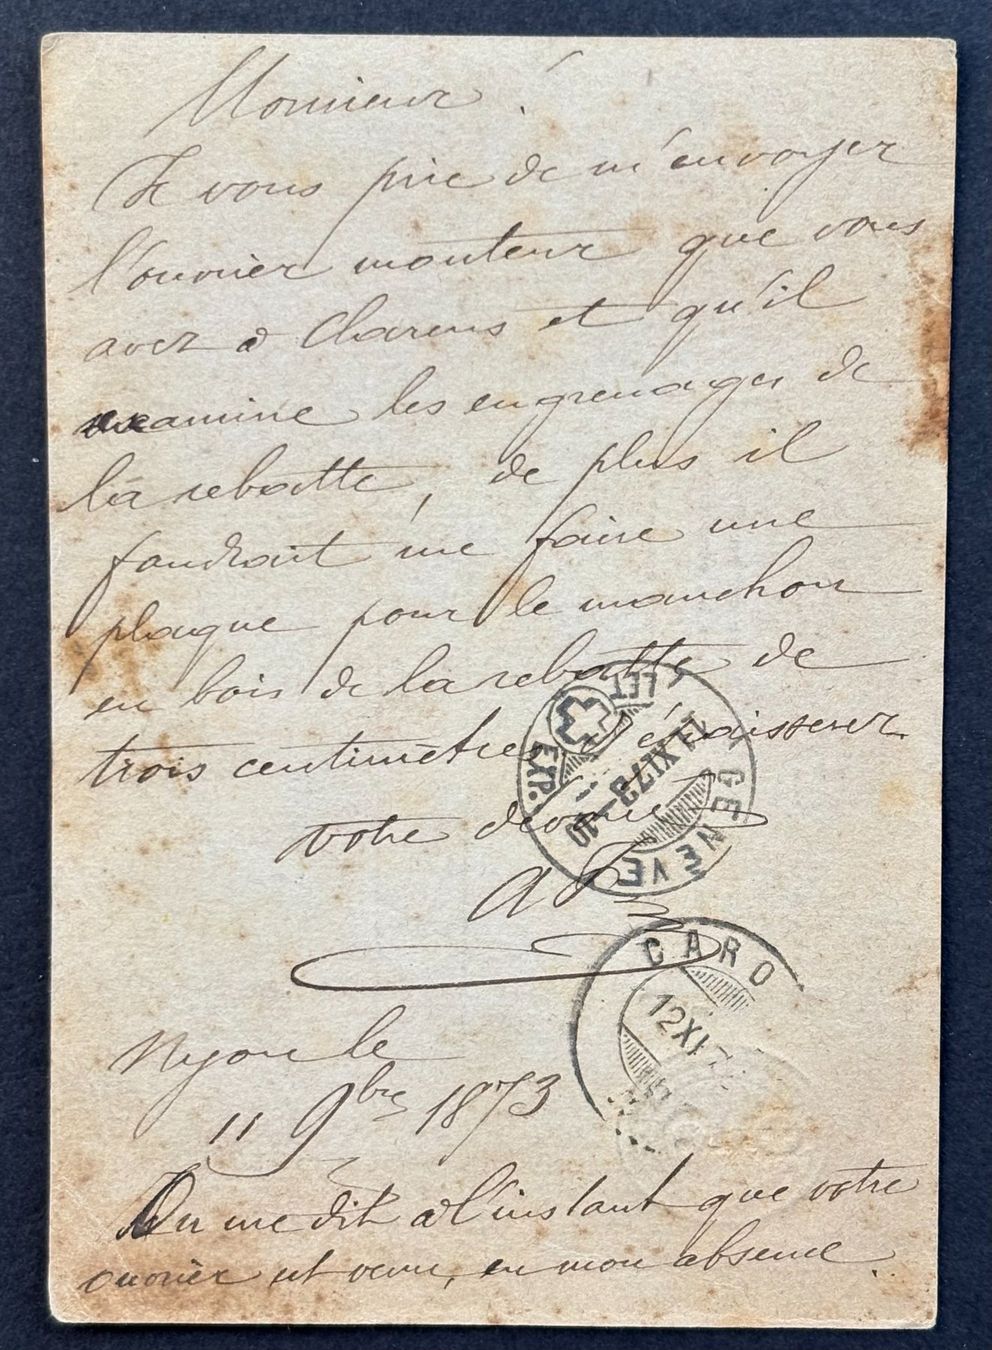 Monsieur !
Je vous prie de m'envoyer
l'ouvrier monteur que vous
avez à Clarens et qu'il
examine les engrenages de
la rebatte, de plus il
faudrait me faire une
plaque pour le manchon
en bois de la rebatte de
trois centimètres d'épaisseur
votre dévoué
Nyon le
11 9bre 1873
On me dit à l'instant que votre
ouvrier est venu, en mon absence.
GENÈVE
11 XI 73 – 10
EXP. LET
CARO
12 XI 7